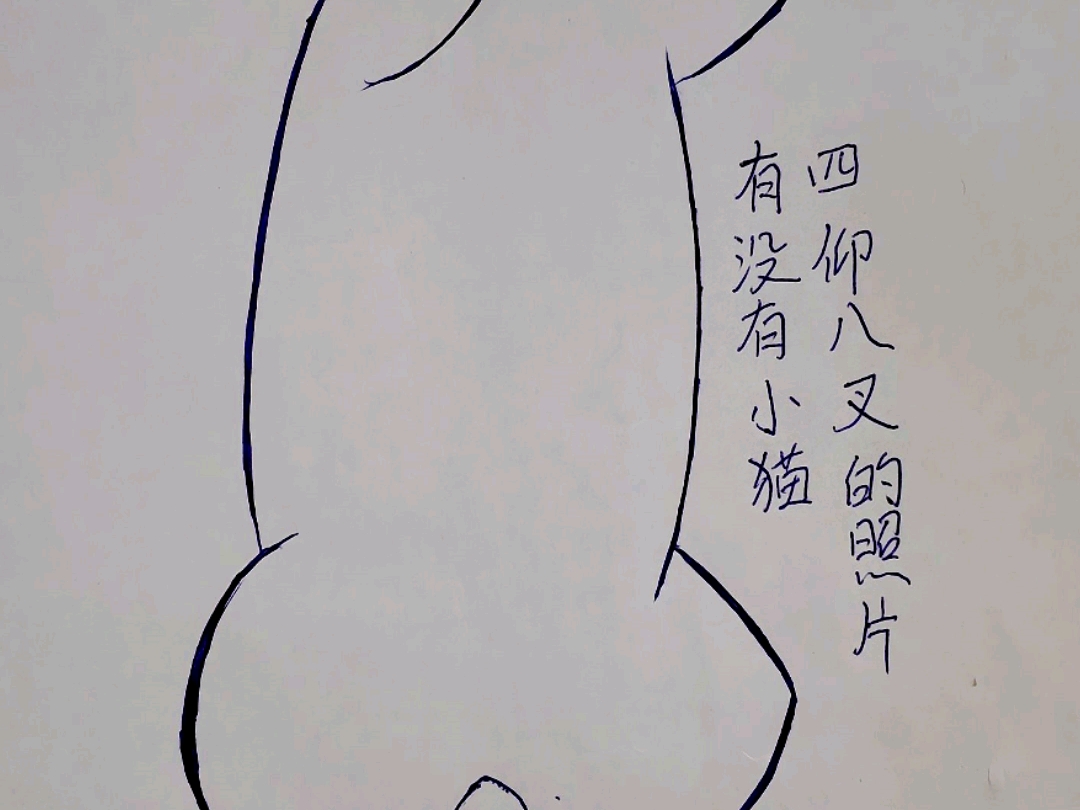 有没有小猫
四仰八叉的照片